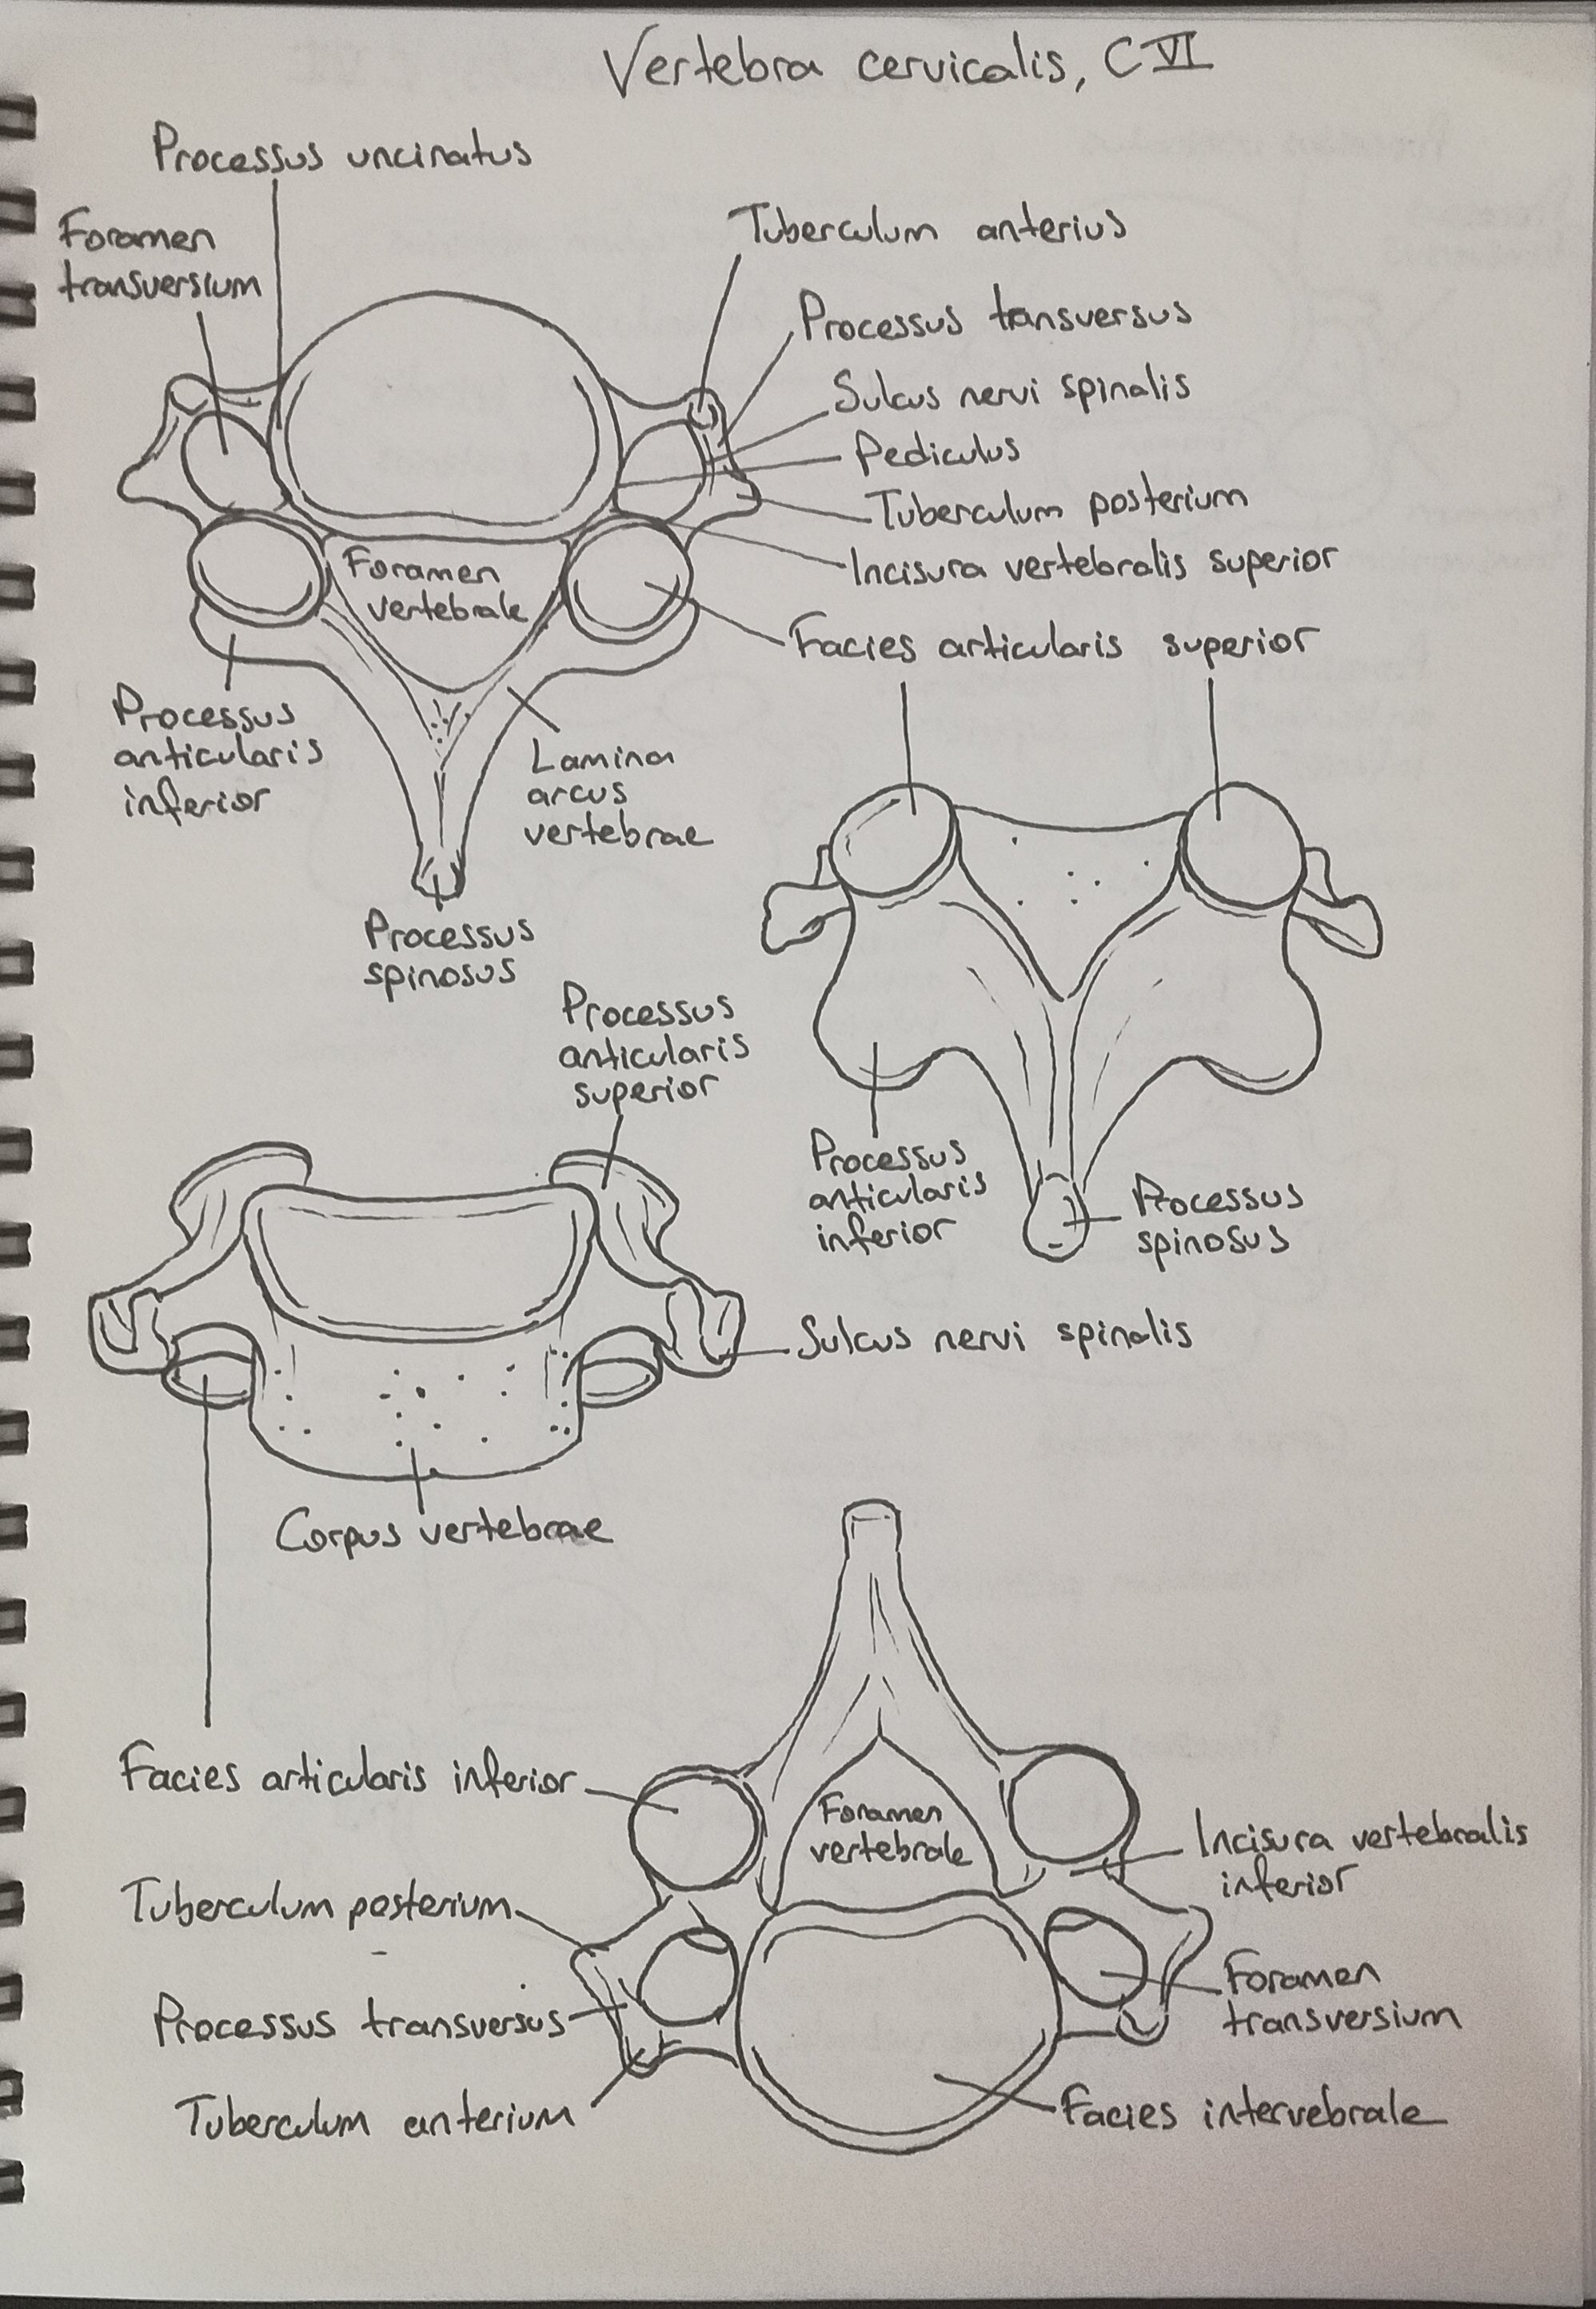 Vertebra cervicalis, C VI
Processus uncinatus
Foramen
transversium
Tuberculum anterius
Processus transversus
Sulcus nervi spinalis
Pediculus
Tuberculum posterium
Incisura vertebralis superior
Facies articularis superior
Foramen
vertebrale
Processus
anticularis
inferior
Lamina
arcus
vertebrae
Processus
spinosus
Processus
anticularis
superior
Processus
anticularis
inferior
Processus
spinosus
Sulcus nervi spinalis
Corpus vertebrae
Facies articularis inferior
Foramen
vertebrale
Incisura vertebralis
inferior
Tuberculum posterium
Foramen
transversium
Processus transversus
Tuberculum anterium
Facies intervebrale